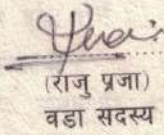 (राजु प्रजा)
वडा सदस्य